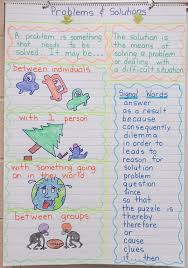 Problems & Solutions
A problem is something
that needs to be
solved. It may be...
The solution is
the means of
solving a problem
or dealing with
a difficult situation
between individuals
with 1 person
with something going
on in the world
between groups
Signal Words
answer
as a result
because
consequently
dilemma
in order to
leads to
reason for
solution
problem
question
since
so that
the puzzle is
thereby
therefore
or
cause
clues
if... then